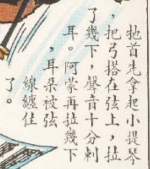 牠首先拿起小提琴
，把弓搭在弦上，拉
了幾下，聲音十分刺
耳。阿蒙再拉幾下
，耳朵被弦
線纏住
了。